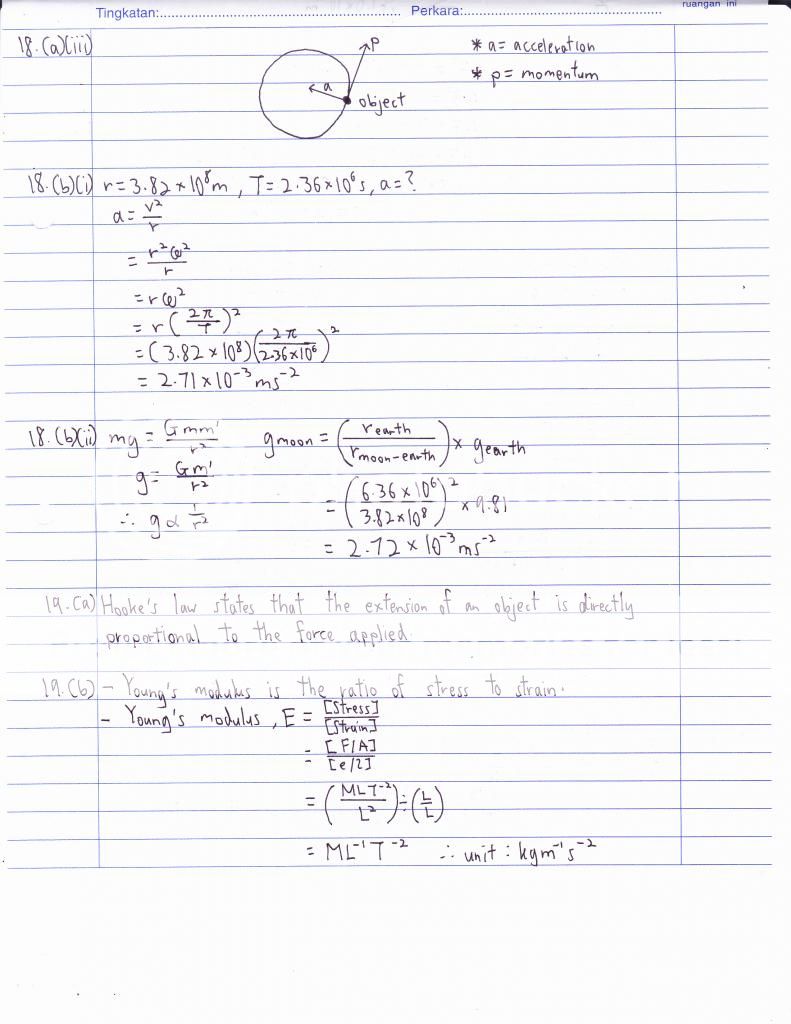 ruangan ini
Tingkatan:.................................................... Perkara:............................................
18.(a)(iii)
P
a
object
* a = acceleration
* p = momentum
18.(b)(i) r = 3.82 × 10⁸ m , T = 2.36 × 10⁶ s, a = ?
a = v²/r
= r²ω²/r
= rω²
= r(2π/T)²
= (3.82 × 10⁸)(2π/2.36×10⁶)²
= 2.71 × 10⁻³ ms⁻²
18.(b)(ii) mg = Gmm'/r²
g = Gm'/r²
∴ g ∝ 1/r²
g moon = (r earth/r moon-earth) × g earth
= (6.36 × 10⁶/3.82 × 10⁸)² × 9.81
= 2.72 × 10⁻³ ms⁻²
19.(a) Hooke's law states that the extension of an object is directly
proportional to the force applied.
19.(b) - Young's modulus is the ratio of stress to strain.
- Young's modulus , E = [Stress]/[Strain]
= [F/A]/[e/l]
= (MLT⁻²/L²) ÷ (L/L)
= ML⁻¹T⁻² ∴ unit : kgm⁻¹s⁻²